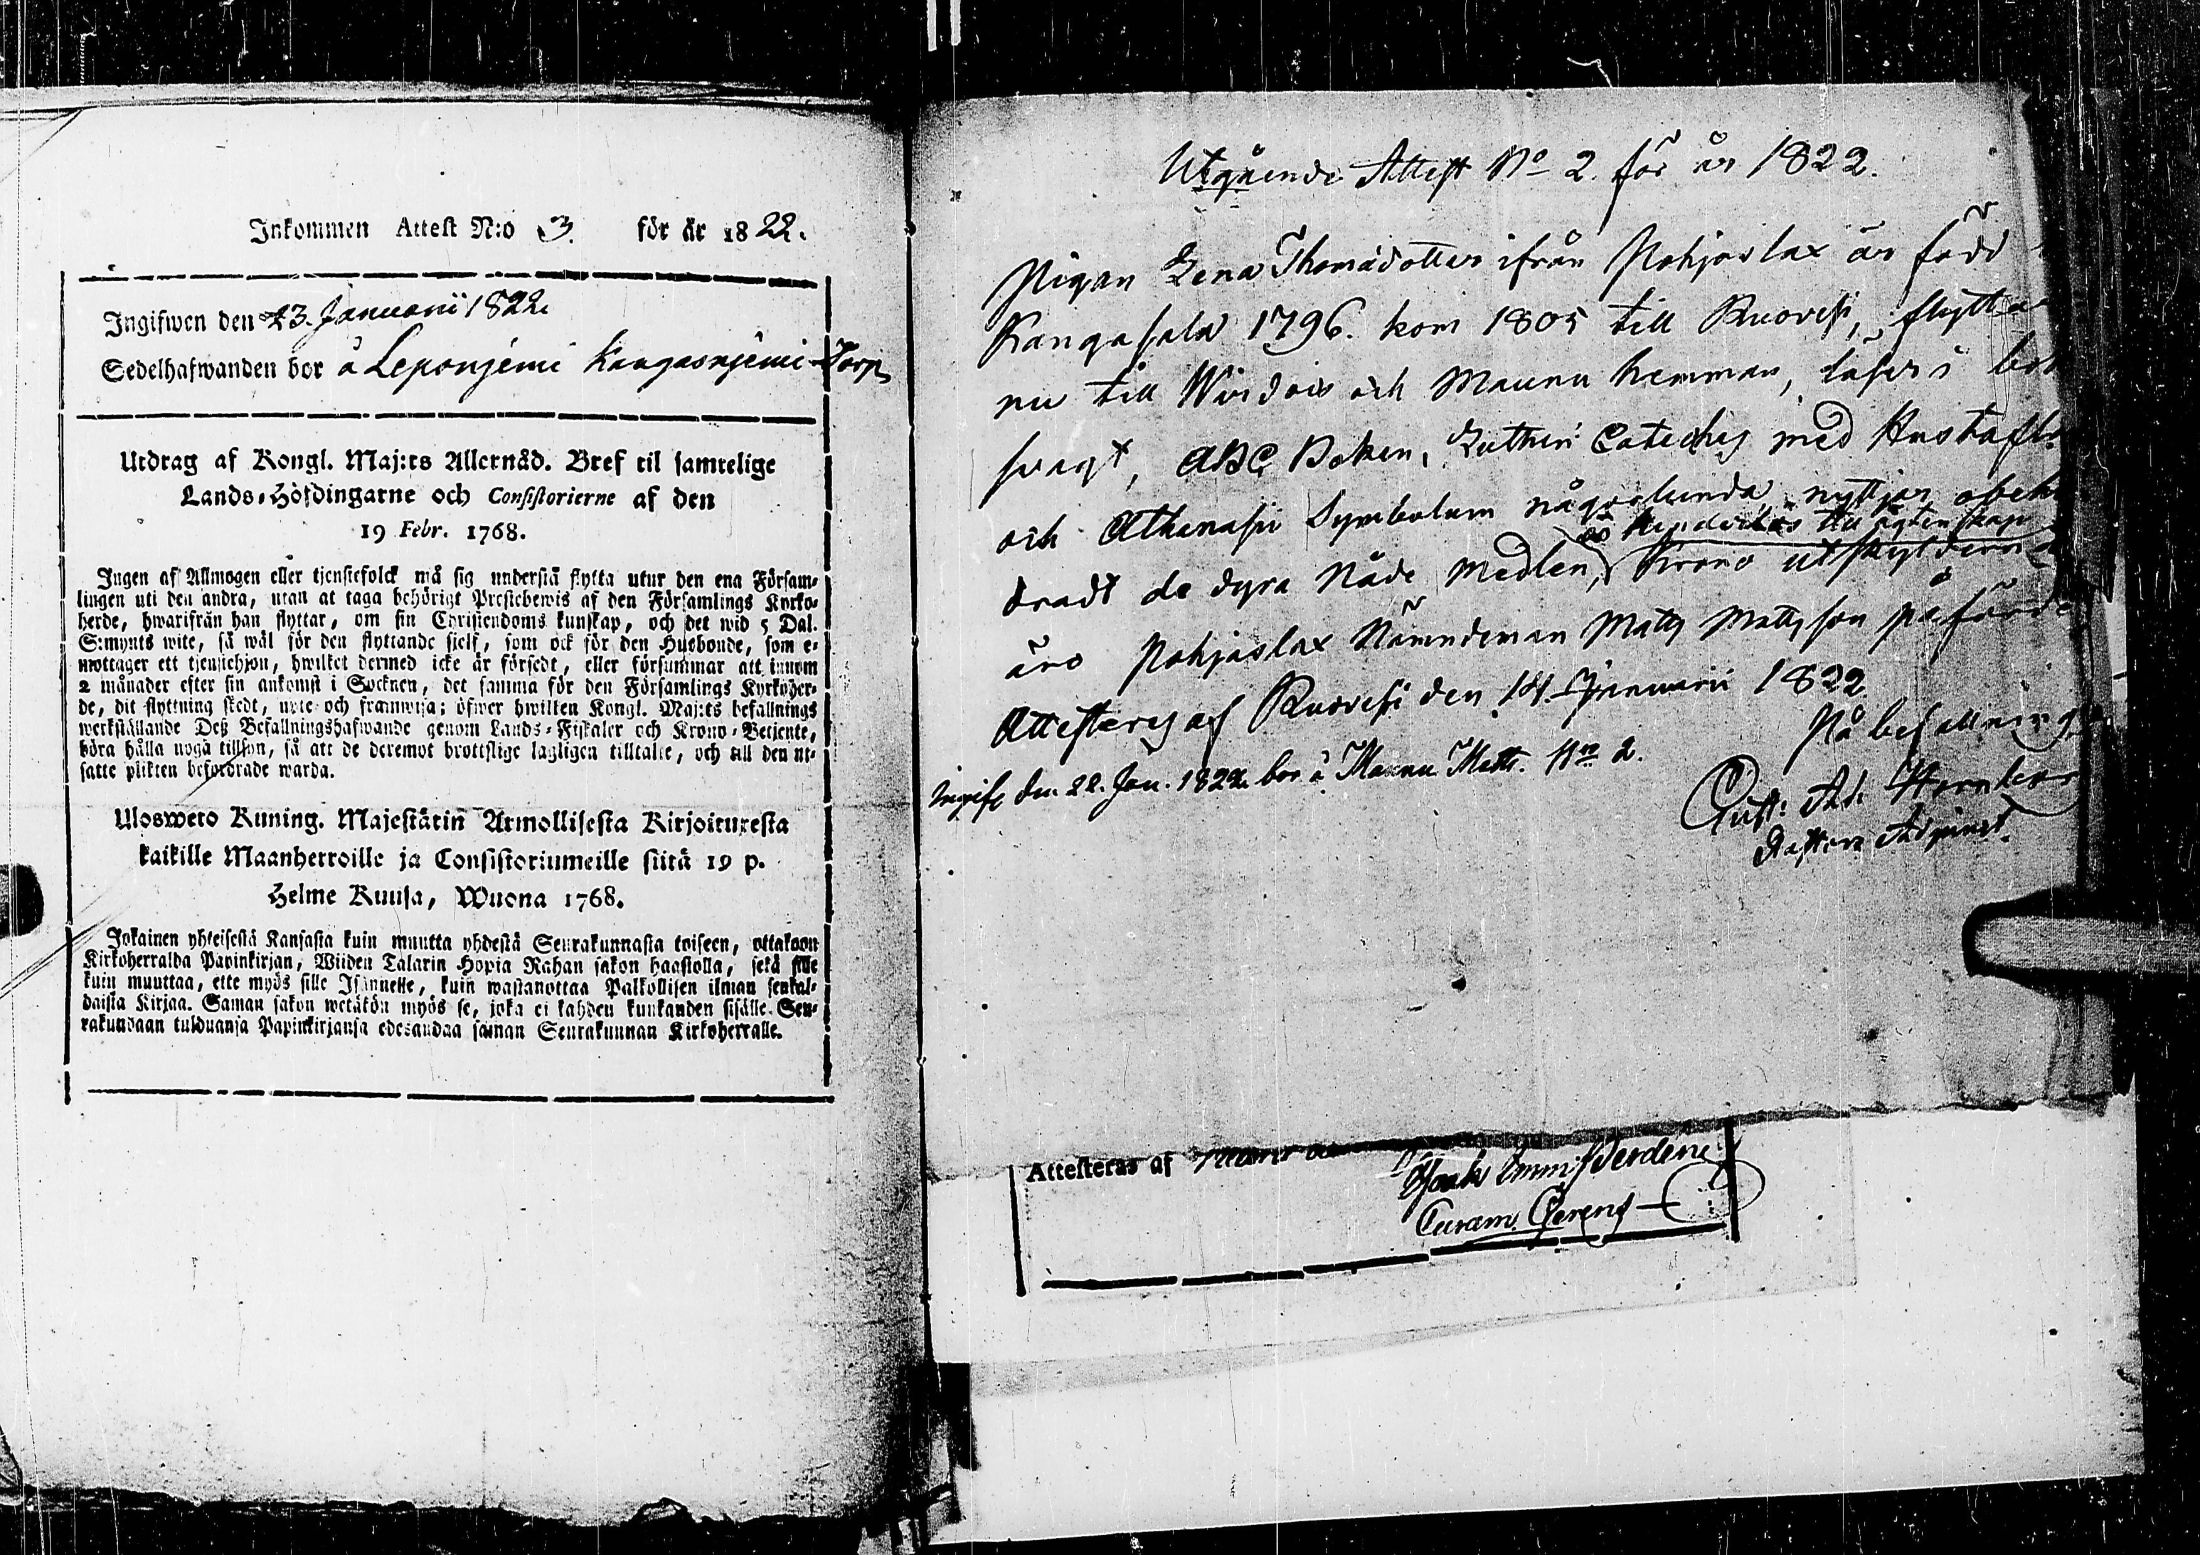 Inkommen Attest N:o 3. för år 1822.
Ingifwen den 23. Januarii 1822.
Sedelhafwanden bor å Leponjemi Kangasnjemi Torp
Utdrag af Kongl. Maj:ts Allernåd. Bref til samtelige
Lands-Höfdingarne och Consistorierne af den
19 Febr. 1768.
Ingen af Allmogen eller tjenstefolck må sig understå flytta utur den ena Försam-
lingen uti den andra, utan at taga behörigt Prestebewis af den Församlings Kyrko-
herde, hwarifrån han flyttar, om sin Christendoms kunskap, och det wid 5 Dal.
S:mynts wite, så wäl för den flyttande sielf, som ock för den Husbonde, som e-
mottager ett tjenstehjon, hwilket dermed icke är försedt, eller försummar att innom
2 månader efter sin ankomst i Socknen, det samma för den Församlings Kyrkoher-
de, dit flyttning skedt, upte och framwisa; öfwer hwilken Kongl. Maj:ts befallnings
werkställande Deß Befallningshafwande genom Lands-Fiskaler och Krono-Betjente,
böra hålla noga tillsyn, så att de deremot brottslige lagligen tilltalte, och till den ut-
satte plikten befordrade warda.
Ulosweto Kuning. Majestätin Armollisesta Kirjoituxesta
kaikille Maanherroille ja Consistoriumeille siitä 19 p.
Helme Kuusa, Wuona 1768.
Jokainen yhteisestä Kansasta kuin muutta yhdestä Seurakunnasta toiseen, ottakoon
Kirkoherralda Papinkirjan, Wiiden Talarin Hopia Rahan sakon haastolla, sekä sille
kuin muuttaa, ette myös sille Isännelle, kuin wastanottaa Palkollisen ilman senkal-
daista Kirjaa. Saman sakon wetäkön myös se, joka ei kahden kuukauden sisälle Seu-
rakundaan tulduansa Papinkirjansa edesandaa saman Seurakunnan Kirkoherralle.
Utgående Attest No 2. för år 1822.
Pigan Lena Thomädotter ifrån Pohjaslax är född
Kangasala 1796. kom 1805 till Ruovesi, flytta
nu till Wirdois och Maunu hemman, läser i bok
svagt, ABC Boken, Lutheri Cateches med Hustafl
och Athanasii Symbolum någorlunda, nyttjar obehi
är hinderlös till ägtenskap
dradt de dyra Nåde medlen, Krono utskylderna
äro Pohjaslax Nämndeman Matts Mattsson påförde
Attesteras af Ruovesi den 14. Januarii 1822
På befallning
Gust: Ad:
Pastors Adjunct.
Ingifv. den 22. Jan. 1822. bor å Maunu Matts. No 2.
Attesteras af
Curam Gerens